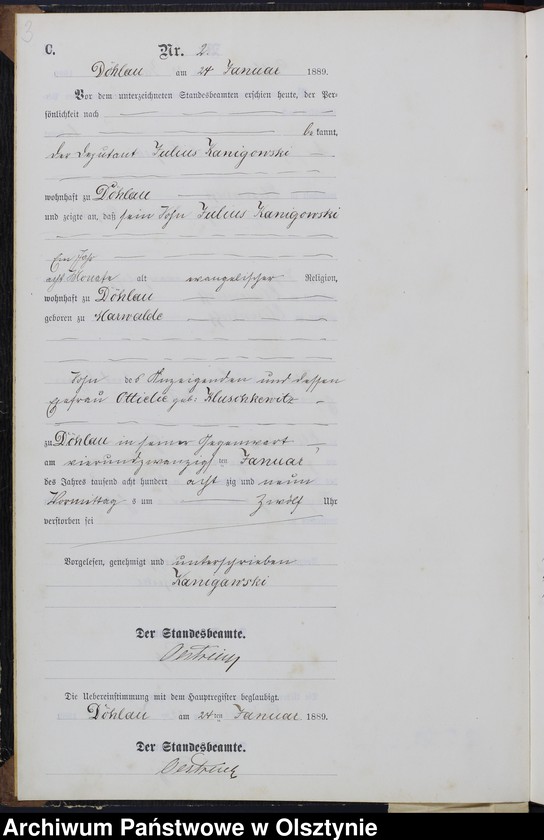 3
C.
Nr. 2.
Döhlau am 24 Januar 1889.
Vor dem unterzeichneten Standesbeamten erschien heute, der Per-
sönlichkeit nach
be kannt,
der Deputant Julius Kanigowski
wohnhaft zu Döhlau
und zeigte an, daß sein Sohn Julius Kanigowski
Ein Jahr
acht Monate alt evangelischer Religion,
wohnhaft zu Döhlau
geboren zu Marwalde
Sohn des Anzeigenden und dessen
Ehefrau Ottielie geb: Kluschkewitz
zu Döhlau in seiner Gegenwart
am vierundzwanzigsten Januar
des Jahres tausend acht hundert acht zig und neun
Vormittag s um Zwölf Uhr
verstorben sei
Vorgelesen, genehmigt und unterschrieben
Kanigawski
Der Standesbeamte.
Oestreich
Die Uebereinstimmung mit dem Hauptregister beglaubigt.
Döhlau am 24ten Januar 1889.
Der Standesbeamte.
Oestreich
Archiwum Państwowe w Olsztynie